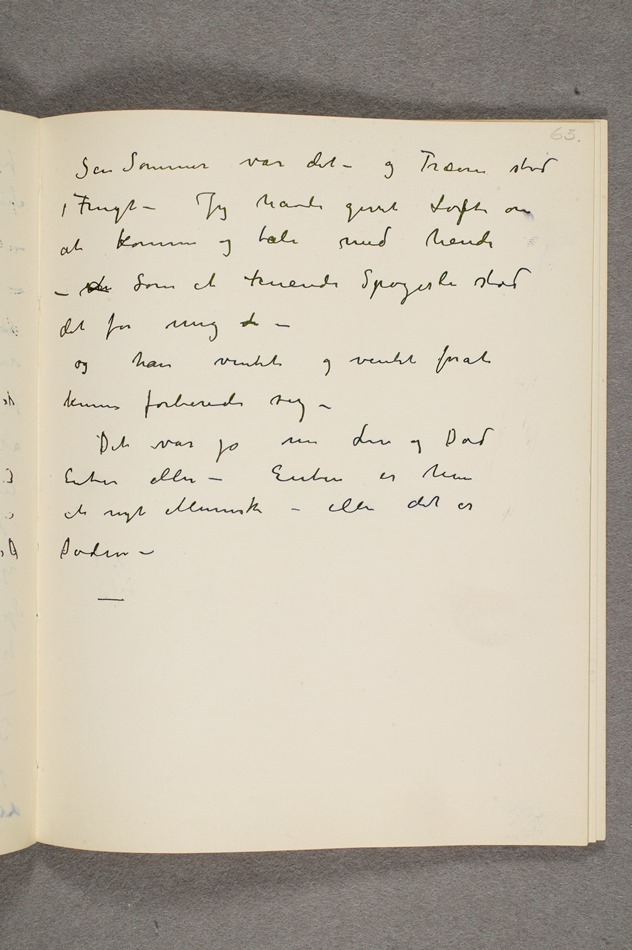 63.
Sen Sommer var det – og Træerne stod
i Frugt – Jeg havde givet Løfte om
at komme og tale med hende
– Som et truende Spøgelse stod
det for mig –
og han ventet og ventet for at
kunne forberede sig –
Det var jo om Liv og Død
Enten eller – Enten er hun
et nyt Menneske – eller det er
Døden –
—